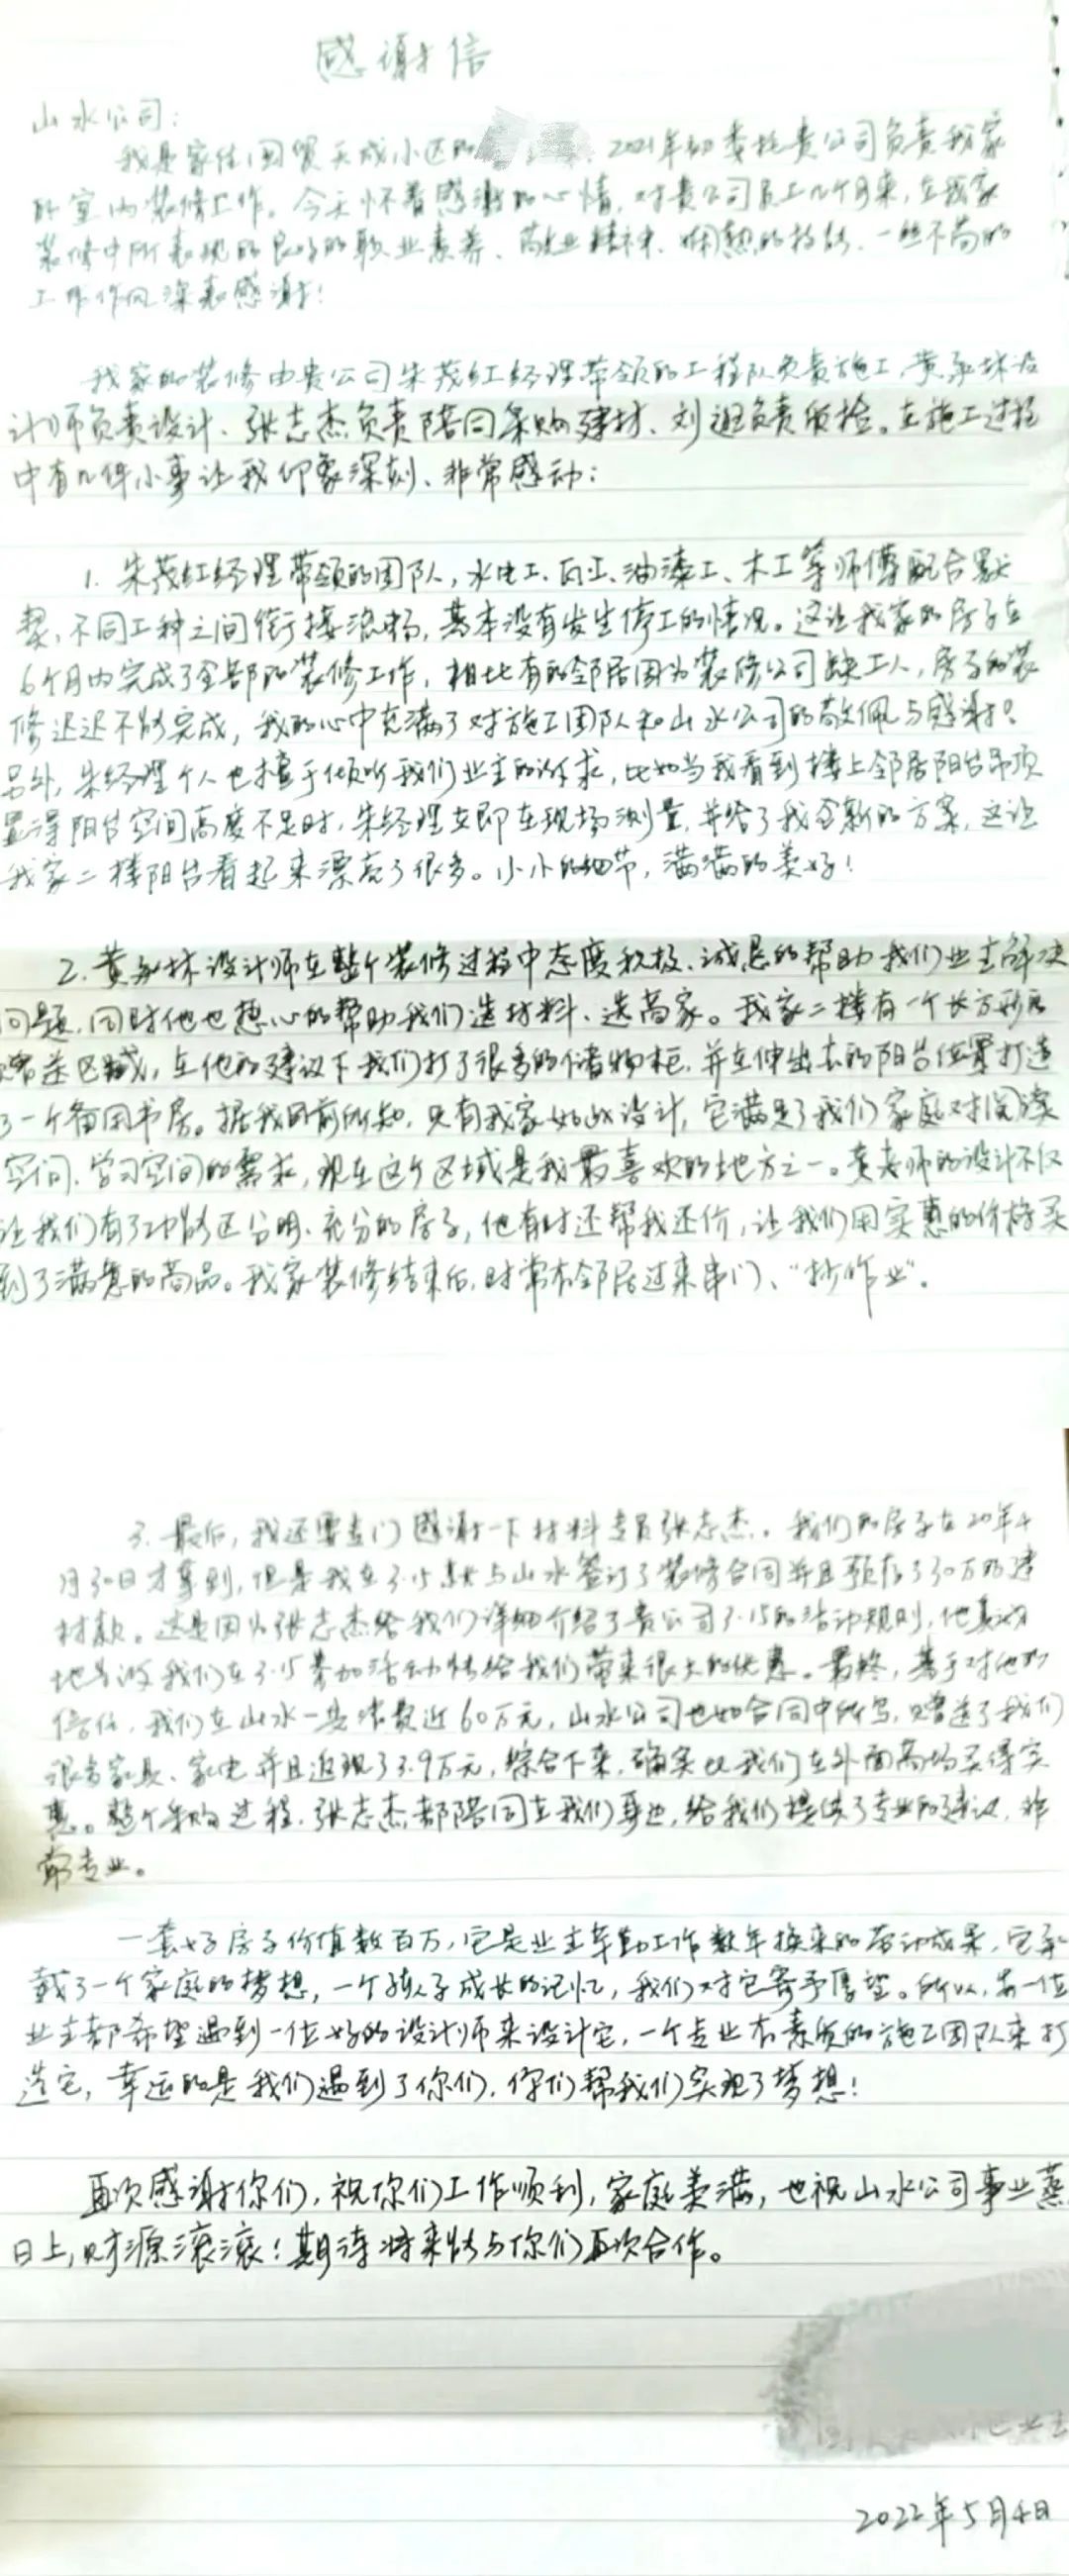 感谢信
山水公司:
我是家住国贸天成小区的 2021年初委托贵公司负责我家
的室内装修工作。今天怀着感谢的心情,对贵公司员工几个月来,在我家
装修中所表现的良好的职业素养、敬业精神、娴熟的技能、一丝不苟的
工作作风深表感谢!
我家的装修由贵公司朱茂红经理带领的工程队负责施工,黄 林设
计师负责设计、张志杰负责陪同采购建材、刘 负责质检。在施工过程
中有几件小事让我印象深刻、非常感动:
1. 朱茂红经理带领的团队,水电工、瓦工、油漆工、木工等师傅配合默
契,不同工种之间衔接流畅,基本没有发生停工的情况。这让我家的房子在
6个月内完成了全部的装修工作,相比有的邻居因为装修公司缺工人,房子的装
修迟迟不能完成,我的心中充满了对施工团队和山水公司的敬佩与感谢。
另外,朱经理个人也擅于倾听我们业主的诉求,比如当我看到楼上邻居阳台吊顶
显得阳台空间高度不足时,朱经理立即在现场测量,并给了我全新的方案,这让
我家二楼阳台看起来漂亮了很多。小小的细节,满满的美好!
2. 黄 林设计师在整个装修过程中态度积极、诚恳的帮助我们业主解决
问题,同时他也热心的帮助我们选材料、选商家。我家二楼有一个长方形的
赠送区域,在他的建议下我们打了很多的储物柜,并在伸出去的阳台位置打造
了一个备用书房。据我目前所知,只有我家如此设计,它满足了我们家庭对阅读
空间、学习空间的需求,现在这个区域是我最喜欢的地方之一。黄老师的设计不仅
让我们有了功能区分明、充分的房子,他有时还帮我还价,让我们用实惠的价格买
到了满意的商品。我家装修结束后,时常有邻居过来串门、“抄作业”。
3. 最后,我还要专门感谢一下材料专员张志杰。我们的房子在20年4
月30日才拿到,但是我在3.15就与山水签订了装修合同并且预存了30万的建
材款。这是因为张志杰给我们详细介绍了贵公司3.15的活动规则,他真诚
地 我们在3.15参加活动能给我们带来很大的优惠。最终,基于对他的
信任,我们在山水一共消费近60万元,山水公司也如合同中所写,赠送了我们
很多家具、家电并且返现了3.9万元,综合下来,确实比我们在外面商场买得实
惠。整个采购过程,张志杰都陪同在我们身边,给我们提供了专业的建议,非
常专业。
一套好房子价值数百万,它是业主辛勤工作数年换来的劳动成果,它承
载了一个家庭的梦想,一个孩子成长的记忆,我们对它寄予厚望。所以,每一位
业主都希望遇到一位好的设计师来设计它,一个专业有素质的施工团队来打
造它,幸运的是我们遇到了你们,你们帮我们实现了梦想!
再次感谢你们,祝你们工作顺利,家庭美满,也祝山水公司事业蒸
日上,财源滚滚!期待将来能与你们再次合作。
2022年5月4日